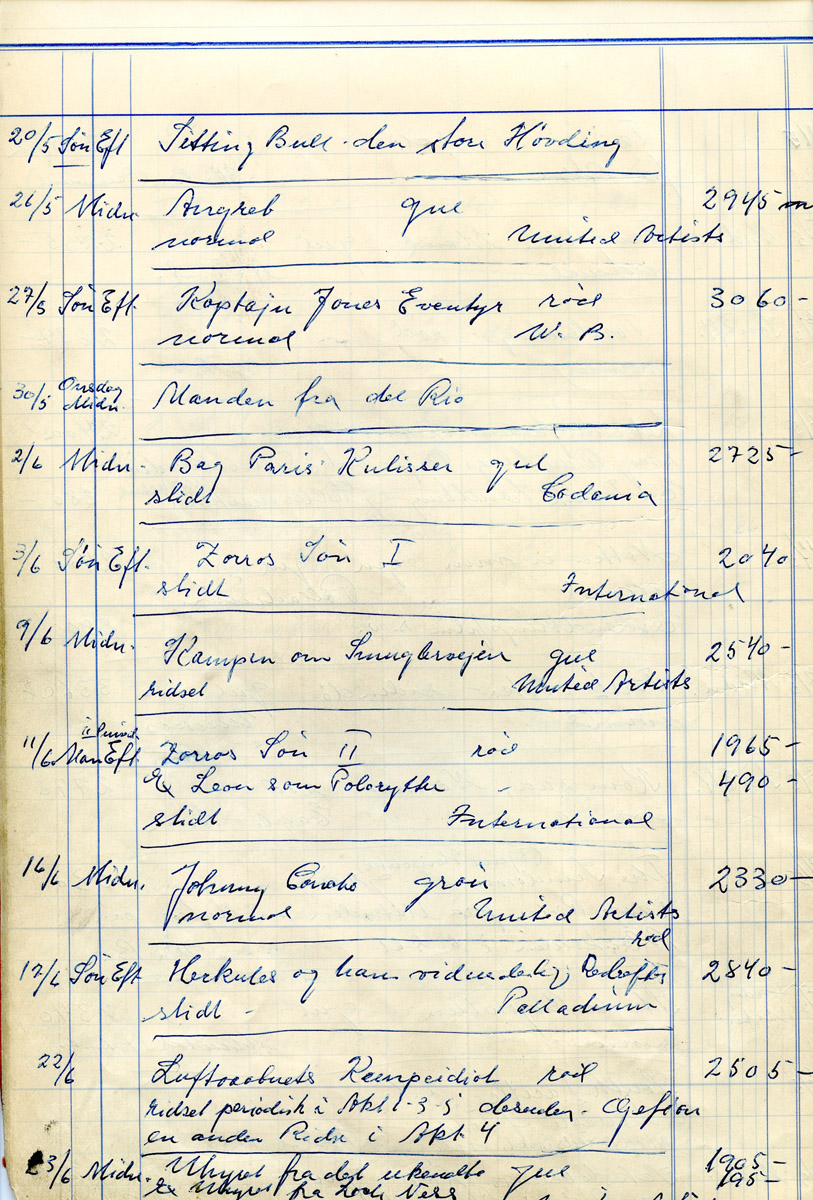 20/5 Søn Eft Sitting Bull - den store Høvding
26/5 Midn. Angreb gul 2945 m
normal United Artists
27/5 Søn Eft. Kaptajn Jones Eventyr rød 3060 -
normal W. B.
30/5 Onsdag Midn. Manden fra del Rio
2/6 Midn. Bag Paris' Kulisser gul 2725 -
slidt Codania
3/6 Søn Eft. Zorros Søn I 2040
slidt International
9/6 Midn. Kampen om Smuglervejen gul 2540 -
ridset United Artists
11/6 Man Eft. Zorros Søn II rød 1965 -
Leon som Polorytter - 490 -
slidt International
16/6 Midn. Johnny Concho grøn 2330 -
normal United Artists
rød
17/6 Søn Eft Herkules og hans vidunderlige Bedrifter 2840 -
slidt - Palladium
22/6 Luftvaabnets Kæmpeidiot rød 2505 -
ridset periodisk i Akt 1-3-5 desuden - Gefion
en anden Ridse i Akt 4
23/6 Midn. Uhyret fra det ukendte gul 1905 -
Uhyret fra Loch Ness 195 -